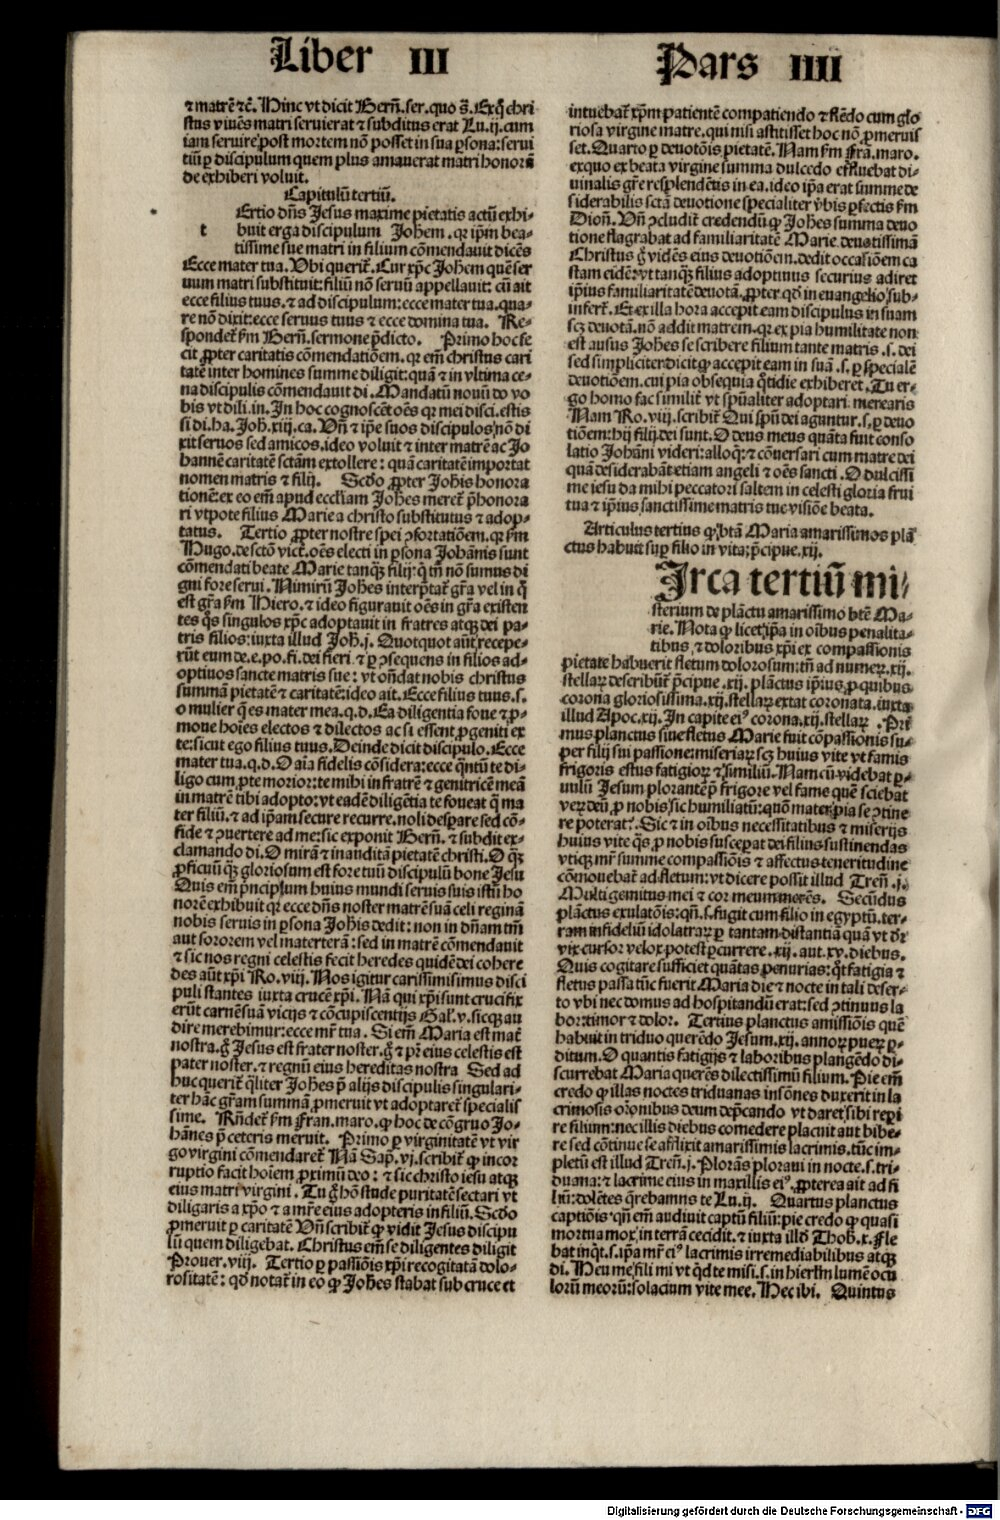 Liber III
Pars IIII
⁊ matrē ⁊c̄. Hinc vt dicit Berñ. ser. quo s̄. Exq̄ chri
stus viuēs matri seruierat ⁊ subditus erat Lu.ij. cum
iam seruire post mortem nō posset in sua ꝑsona: serui
tiū ꝑ discipulum quem plus amauerat matri honorā
de exhiberi voluit.
Capitulū tertiū.
t Ertio dn̄s Jesus maxime pietatis actū exhi-
buit erga discipulum Johem. qꝛ ip̄m bea-
tissime sue matri in filium cōmendauit dicēs
Ecce mater tua. Vbi querit̄. Cur xp̄c Johem quē ser
uum matri substituit: filiū nō seruū appellauit: cū ait
ecce filius tuus. ⁊ ad discipulum: ecce mater tua. qua-
re nō dixit: ecce seruus tuus ⁊ ecce domina tua. Re-
spondet̄ fm̄ Berñ. sermone p̄dicto. Primo hoc fe
cit ꝓpter caritatis cōmendatiōem. qꝛ em̄ christus cari
tatē inter homines summe diligit: quā ⁊ in vltima ce-
na discipulis cōmendauit di. Mandatū nouū do vo
bis vt dili. in. In hoc cognoscēt oēs qꝛ mei disci. estis
si di. ha. Joh. xiij. ca. Vn̄ ⁊ ip̄e suos discipulos nō di
xit seruos sed amicos. ideo voluit ⁊ inter matrē ac Jo
hannē caritatē sctām extollere: quā caritatē importat
nomen matris ⁊ filij. Scd̄o ꝓpter Joh̄is honora
tionē: ex eo em̄ apud eccl̄iam Joh̄es meret̄ p̄honora
ri vtpote filius Marie a christo substitutus ⁊ adop-
tatus. Tertio ꝓpter nostre spei ↄfortatiōem. qꝛ fm̄
Hugo. de sctō vict̄. oēs electi in ꝑsona Johānis sunt
cōmendati beate Marie tanqꝫ filij: q̄ tn̄ nō sumus di
gni fore serui. Nimirū Joh̄es interp̄tat̄ gr̄a vel in q̄
est gr̄a fm̄ Hiero. ⁊ ideo figurauit oēs in gr̄a existen
tes q̄s singulos xp̄c adoptauit in fratres atqꝫ dei pa-
tris filios: iuxta illud Joh̄. j. Quotquot aūt recepe-
rūt eum de. e. po. fi. dei fieri ⁊ ꝑ ↄsequens in filios ad-
optiuos sancte matris sue: vt ōn̄dat nobis christus
summā pietatē ⁊ caritatē: ideo ait. Ecce filius tuus. s.
o mulier q̄ es mater mea. q.d. Ea diligentia foue ⁊ ꝓ-
moue hoīes electos ⁊ dilectos ac si essent ꝓgeniti ex
te: sicut ego filius tuus. Deinde dicit discipulo. Ecce
mater tua. q.d. O aīa fidelis cōsidera: ecce q̄ntū te di-
ligo cum ꝓ te morior: te mihi in fratrē ⁊ genitricē meā
in matrē tibi adopto: vt eadē diligētia te foueat q̄ ma
ter filiū. ⁊ ad ip̄am secure recurre. noli desꝑare sed cō-
fide ⁊ ↄuertere ad me: sic exponit Berñ. ⁊ subdit ex-
clamando di. O mirā ⁊ inauditā pietatē christi. O qꝫ
ꝓficuū qꝫ gloriosum est fore tuū discipulū bone Jesu
Quis em̄ princip̄um huius mundi seruis suis istū ho
norē exhibuit qꝛ ecce dn̄s noster matrē suā celi reginā
nobis seruis in ꝑsona Joh̄is dedit: non in dn̄am tm̄
aut sororem vel materterā: sed in matrē cōmendauit
⁊ sic nos regni celestis fecit heredes quidē dei cohere
des aūt xp̄i Ro. viij. Nos igitur carissimisimus disci
puli stantes iuxta crucē xp̄i. Nā qui xp̄i sunt crucifix
erūt carnē suā vicijs ⁊ cōcupiscentijs Gal̄. v. sicqꝫ au
dire merebimur: ecce mr̄ tua. Si em̄ Maria est mat̄
nostra. g̊ Jesus est frater noster. g̊ ⁊ pr̄ eius celestis est
pater noster. ⁊ regnū eius hereditas nostra Sed ad
huc querit̄ q̄liter Joh̄es p̄ alijs discipulis singulari-
ter hāc gr̄am summā ꝓmeruit vt adoptaret̄ specialis
sime. Rn̄det̄ fm̄ Fran. maro. ꝙ hoc de cōgruo Jo-
hānes p̄ ceteris meruit. Primo ꝑ virginitatē vt vir
go virgini cōmendaret̄ Nā Sap. vj. scribit̄ ꝙ incor
ruptio facit hoīem ꝓximū deo: ⁊ sic christo iesu atqꝫ
eius matri virgini. Tu g̊ hō stude puritatē sectari vt
diligaris a xp̄o ⁊ a mr̄e eius adopteris in filiū. Scd̄o
ꝓmeruit ꝑ caritatē Vn̄ scribit̄ ꝙ vidit Jesus discipu
lū quem diligebat. Christus em̄ se diligentes diligit
Prouer. viij. Tertio ꝑ passiōis xp̄i recogitatā dolo-
rositatē: qd̄ notat̄ in eo ꝙ Joh̄es stabat sub cruce et
intuebat̄ xp̄m patientē compatiendo ⁊ flēdo cum glo
riosa virgine matre. qui nisi astitisset hoc nō ꝓmeruis
set. Quarto ꝑ deuotōis pietatē. Nam fm̄ Frā. maro.
exquo ex beata virgine summa dulcedo effluebat di-
uinalis gr̄e resplendētis in ea. ideo ip̄a erat summe de
siderabilis sctā deuotione specialiter v̄bis ꝑfectis fm̄
Dion̄. Vn̄ ↄcludit̄ credendū ꝙ Joh̄es summa deuo
tione flagrabat ad familiaritatē Marie. deuotissimā
Christus g̊ vidēs eius deuotiōem. dedit occasiōem ca
stam eidē: vt tanqꝫ filius adoptiuus securius adiret
ip̄ius familiaritatē deuotā. ꝓpter qd̄ in euangelio sub-
infert̄. Et ex illa hora accepit eam discipulus in suam
scꝫ deuotā. nō addit matrem. qꝛ ex pia humilitate non
est ausus Joh̄es se scribere filium tante matris .s. dei
sed simpliciter dicit ꝙ accepit eam in suā .s. ꝑ specialē
deuotiōem. cui pia obsequia q̄tidie exhiberet. Tu er-
go homo fac similit̄ vt spūaliter adoptari merearis
Nam Ro. viij. scribit̄ Qui spū dei aguntur. s. ꝑ deuo
tiōem: hij filij dei sunt. O deus meus quāta fuit conso
latio Johāni videri: alloqꝫ: ⁊ cōuersari cum matre dei
quā desiderabāt etiam angeli ⁊ oēs sancti. O dulcissi
me iesu da mihi peccatori saltem in celesti gloria frui
tua ⁊ ip̄ius sanctissime matris tue visiōe beata.
Articulus tertius ꝙ btā Maria amarissimos plā
ctus habuit suꝑ filio in vita: p̄cipue. xij.
Irca tertiū mi-
sterium de plāctu amarissimo bt̄e Ma-
rie. Nota ꝙ licet ip̄a in oībus penalita-
tibus ⁊ doloribus xp̄i ex compassionis
pietate habuerit fletum dolorosum: tn̄ ad numeꝝ. xij.
stellaꝝ describūt̄ p̄cipue. xij. plāctus ip̄ius. ꝓ quibus
corona gloriosissima. xij. stellaꝝ extat coronata. iuxta
illud Apoc. xij. In capite eiꝰ corona. xij. stellaꝝ. Pri
mus planctus siue fletus Marie fuit cōpassionis su-
per filij sui passione: miseriaꝝ scꝫ huius vite vt famis
frigoris estus fatigioꝝ ⁊ similiū. Nam cū videbat ꝑ-
uulū Jesum plorantē p̄ frigore vel fame quē sciebat
veꝝ deū ꝓ nobis sic humiliatū: quōn mater pia se ↄtine
re poterat?. Sic ⁊ in oībus necessitatibus ⁊ miserijs
huius vite q̄s ꝓ nobis susceꝑat dei filius sustinendas
vtiqꝫ mr̄ summe compassiōis ⁊ affectus teneritudine
cōmouebat̄ ad fletum: vt dicere possit illud Tren̄. j.
Multi gemitus mei ⁊ cor meum merēs. Secūdus
plāctus exulatōis: qn̄. s. fugit cum filio in egyptū. ter-
ram infideliū idolatraꝝ ꝑ tantam distantiā quā vt dr̄
vix cursor velox potest ꝑcurrere. xij. aut. xv. diebus.
Quis cogitare sufficiet quātas penurias: q̄t fatigia ⁊
fletus passa tūc fuerit Maria die ⁊ nocte in tali deser-
to vbi nec domus ad hospitandū erat: sed ↄtinuus la
bor: timor ⁊ dolor. Tertius planctus amissiōis quē
habuit in triduo querēdo Jesum. xij. annoꝝ pueꝝ ꝑ-
ditum. O quantis fatigijs ⁊ laboribus plangēdo di-
scurrebat Maria querēs dilectissimū filium. Pie em̄
credo ꝙ illas noctes triduanas insōnes duxerit in la
crimosis orōnibus deum dep̄cando vt daret sibi reꝑi
re filium: nec illis diebus comedere placuit aut bibe-
re sed cōtinue se afflixit amarissimis lacrimis. tūc im-
pletū est illud Tren̄. j. Plorās ploraui in nocte. s. tri-
duana: ⁊ lacrime eius in maxillis eiꝰ. ꝓpterea ait ad fi
liū: dolētes q̄rebamns te Lu. ij. Quartus planctus
captiōis qn̄ em̄ audiuit captū filiū: pie credo ꝙ quasi
mortua mox in terrā cecidit. ⁊ iuxta illd̄ Thob̄. x. Fle
bat inqͣt. s. ip̄a mr̄ eiꝰ lacrimis irremediabilibus atqꝫ
di. Heu me fili mi vt qd̄ te misi. s. in hierl̄m lumē ocu
lorū meorū: solacium vite mee. Hec ibi. Quintus
Digitalisierung gefördert durch die Deutsche Forschungsgemeinschaft - DFG